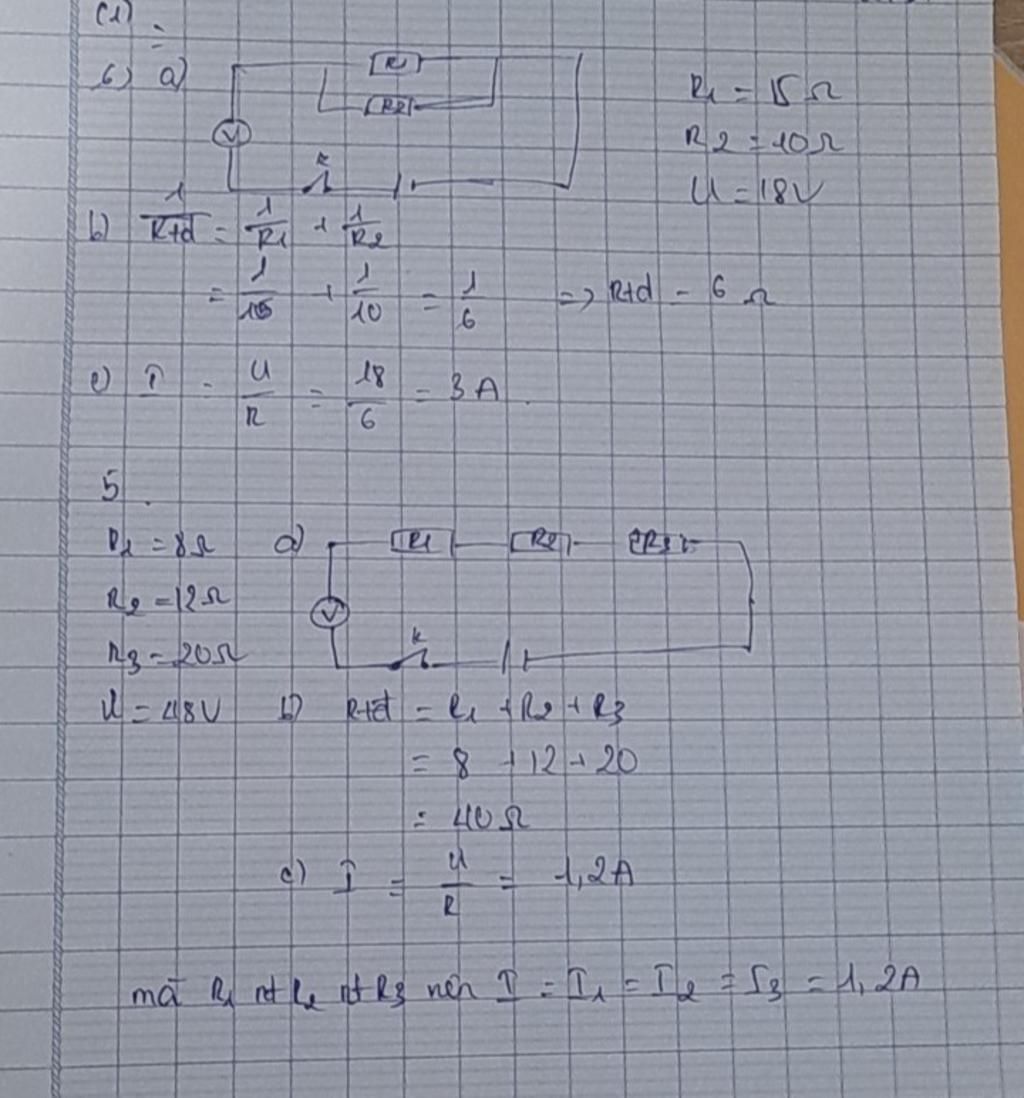 (1)
6) a) R1 R2 V K
R1 = 15 Ω
R2 = 10 Ω
U = 18V
b) 1/Rtd = 1/R1 + 1/R2
= 1/15 + 1/10 = 1/6 => Rtd = 6 Ω
c) I = U/R = 18/6 = 3 A.
5.
R1 = 8Ω a) R1 R2 R3
R2 = 12Ω V
R3 = 20Ω K
U = 48V b) Rtđ = R1 + R2 + R3
= 8 + 12 + 20
= 40 Ω
c) I = U/R = 1,2A
mà R1 nt R2 nt R3 nên I = I1 = I2 = I3 = 1,2A